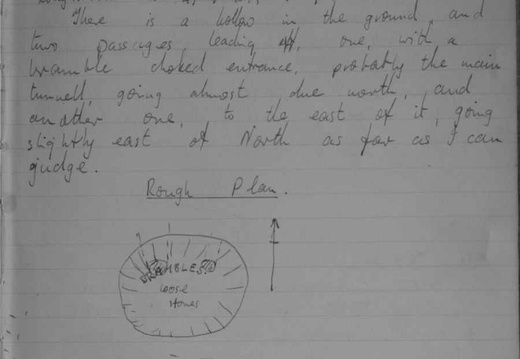 There is a hollow in the ground and
two passages leading off, one, with a
bramble choked entrance, probably the main
tunnell, going almost due north, and
another one, to the east of it, going
slightly east of North as far as I can
judge.
Rough Plan.
BRAMBLES
loose
stones